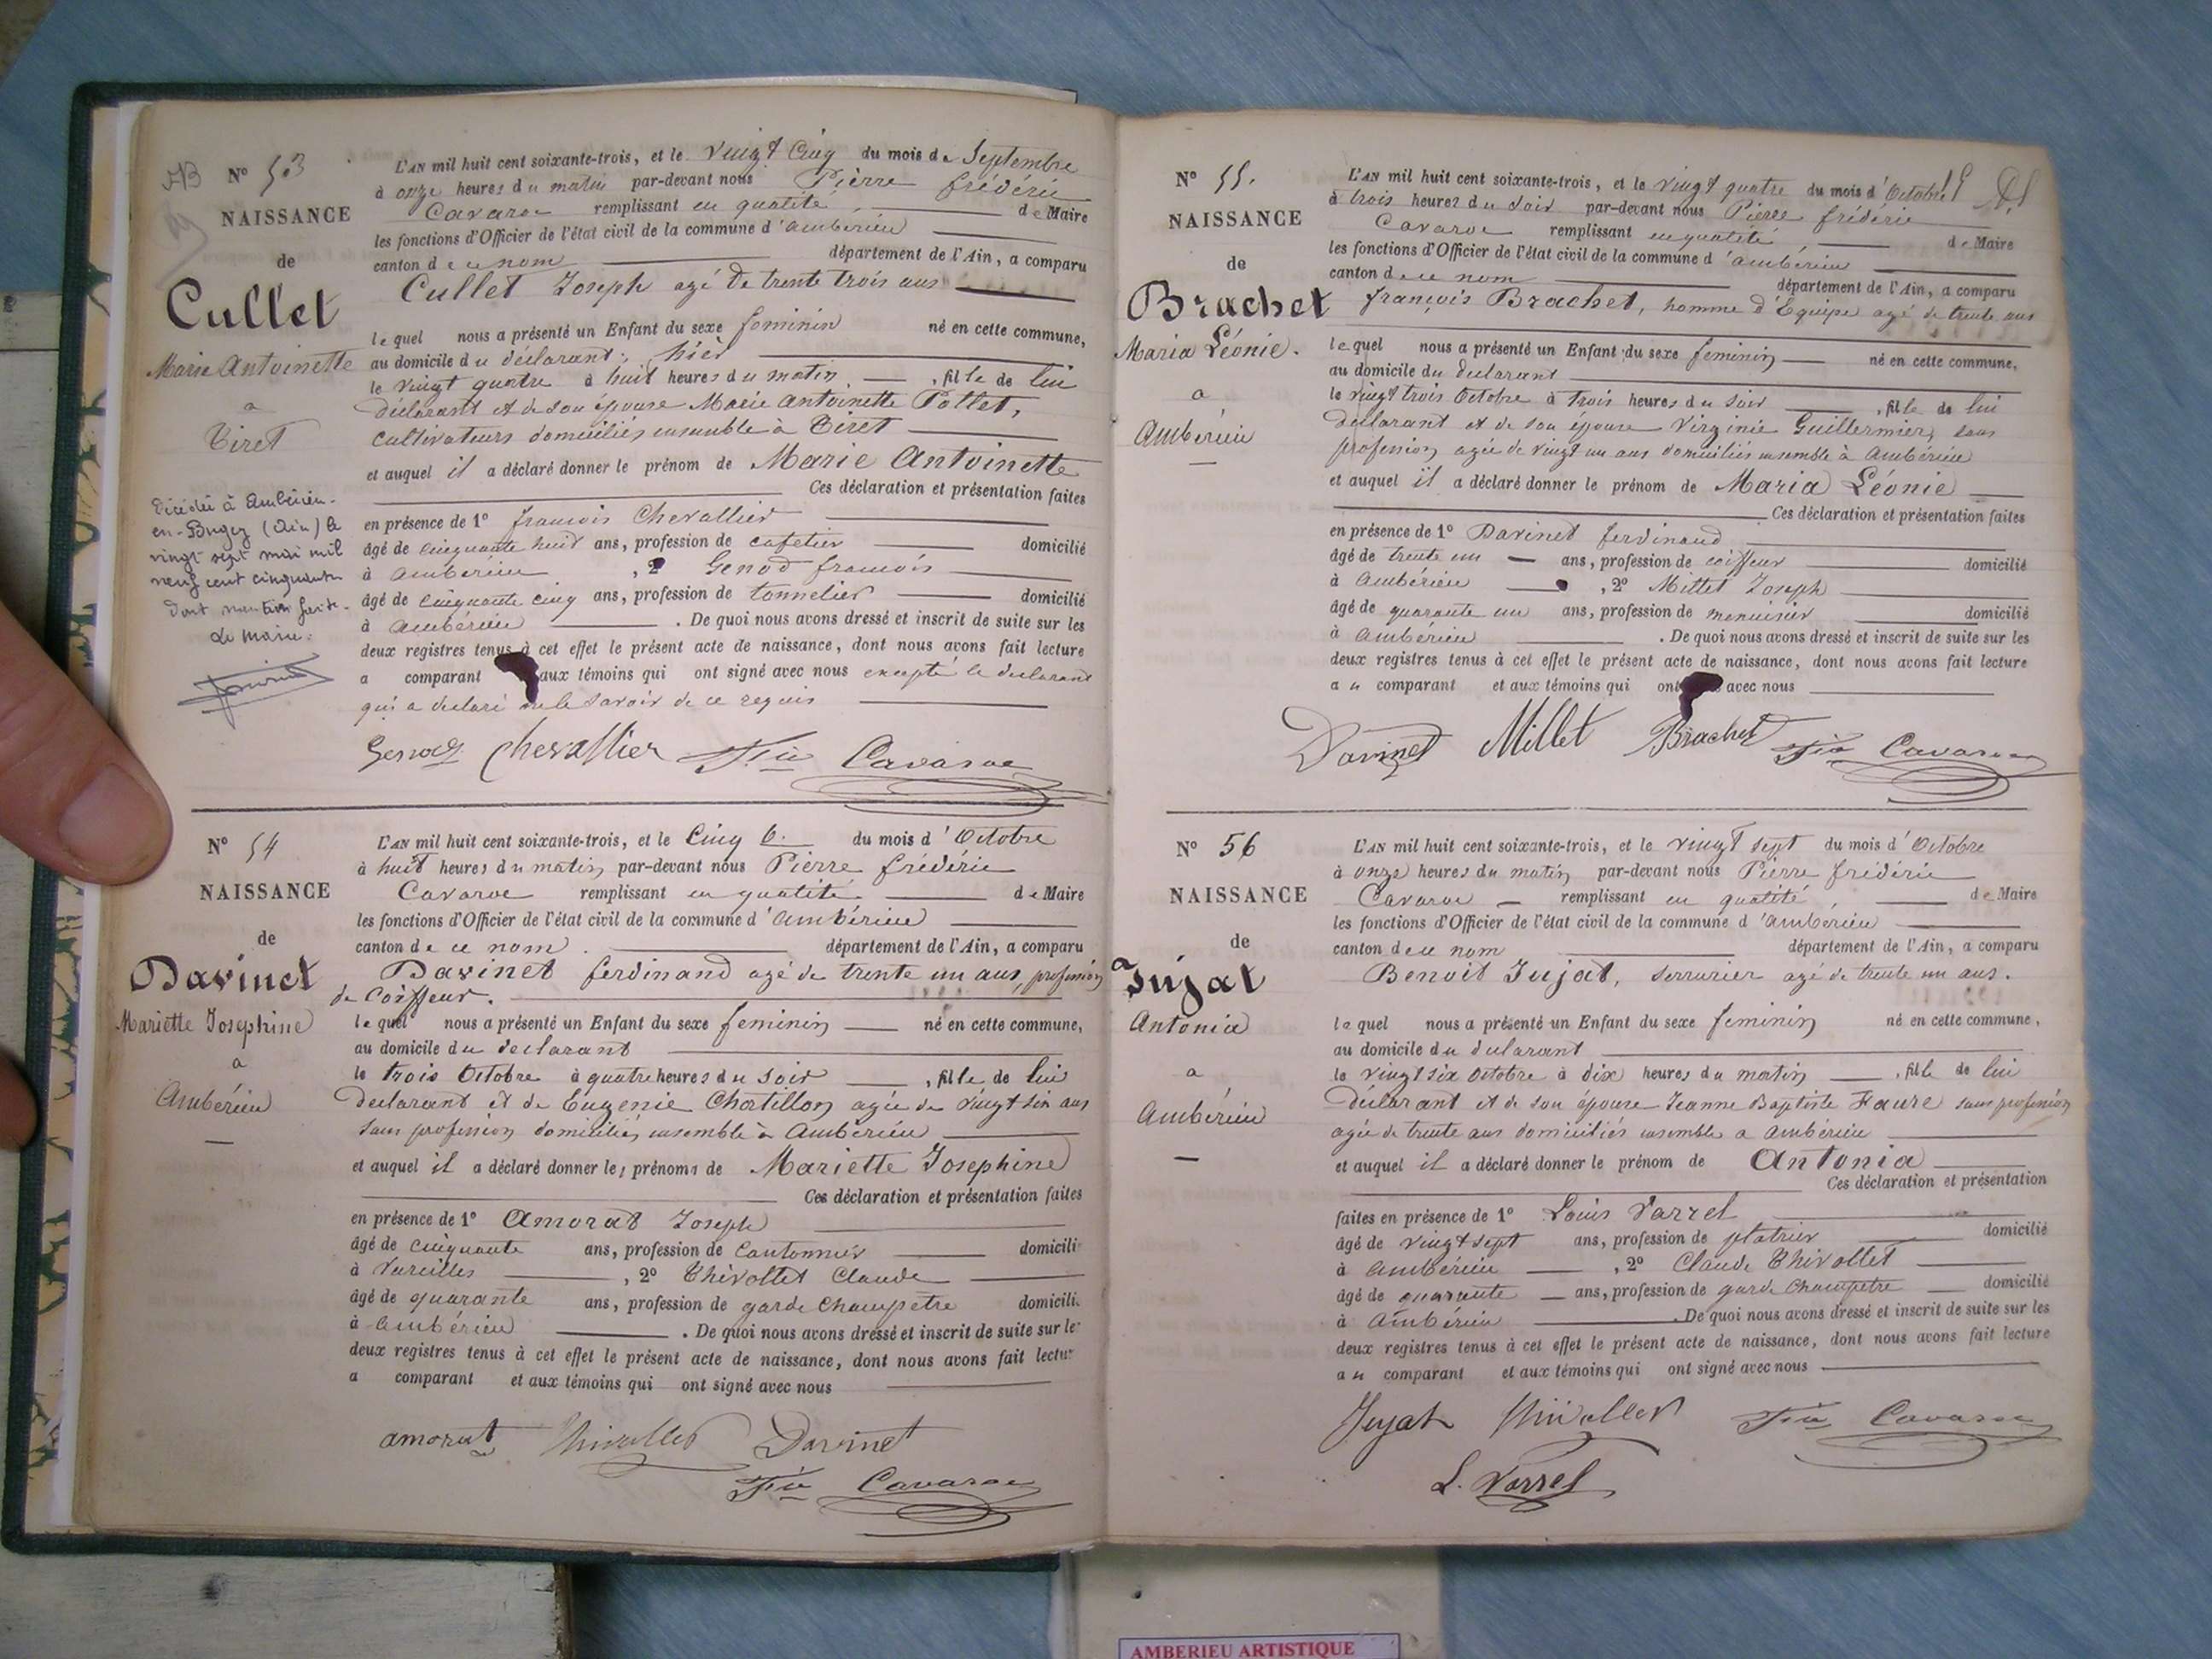 N° 53
NAISSANCE
de
Cullet
Marie Antoinette
a
Tiret
Décédée à Ambérieu-
en-Bugey (Ain) le
vingt sept mai mil
neuf cent cinquante
Dont mention faite.
Le Maire.
L'AN mil huit cent soixante-trois, et le Vingt Cinq du mois de Septembre
à onze heures du matin par-devant nous Pierre frédéric
Cavaroc remplissant en qualité de Maire
les fonctions d'Officier de l'état civil de la commune d'ambérieu
canton de ce nom département de l'Ain, a comparu
Cullet Joseph agé de trente trois ans
lequel nous a présenté un Enfant du sexe feminin né en cette commune,
au domicile du déclarant, hièr
le vingt quatre à huit heures du matin, fille de lui
déclarant et de son épouse Marie Antoinette Pollet,
cultivateurs domiciliés ensemble à Tiret
et auquel il a déclaré donner le prénom de Marie Antoinette
Ces déclaration et présentation faites
en présence de 1° françois Chevallier
âgé de cinquante huit ans, profession de cafetier domicilié
à ambérieu, 2° Genod françois
âgé de cinquante cinq ans, profession de tonnelier domicilié
à ambérieu. De quoi nous avons dressé et inscrit de suite sur les
deux registres tenus à cet effet le présent acte de naissance, dont nous avons fait lecture
a comparant aux témoins qui ont signé avec nous excepté le déclarant
qui a déclaré ne le savoir de ce requis
Genod Chevallier Fic Cavaroc
N° 54
NAISSANCE
de
Davinet
Mariette Josephine
a
Ambérieu
L'AN mil huit cent soixante-trois, et le Cinq 8. du mois d'Octobre
à huit heures du matin par-devant nous Pierre frédéric
Cavaroc remplissant en qualité de Maire
les fonctions d'Officier de l'état civil de la commune d'ambérieu
canton de ce nom. département de l'Ain, a comparu
Davinet ferdinand agé de trente un ans, profession
de Coiffeur.
lequel nous a présenté un Enfant du sexe feminin né en cette commune,
au domicile du declarant
le trois Octobre à quatre heures du soir, fille de lui
declarant et de Eugenie Chatillon agée de vingt six ans
sans profession domiciliés ensemble à Ambérieu
et auquel il a déclaré donner les prénoms de Mariette Josephine
Ces déclaration et présentation faites
en présence de 1° Amorat Joseph
âgé de cinquante ans, profession de Cantonnier domicili
à Vareilles, 2° Thivollet Claude
âgé de quarante ans, profession de garde Champetre domicili
à ambérieu. De quoi nous avons dressé et inscrit de suite sur le
deux registres tenus à cet effet le présent acte de naissance, dont nous avons fait lectur
a comparant et aux témoins qui ont signé avec nous
amorat Thivollet Davinet
Fic Cavaroc
N° 55.
NAISSANCE
de
Brachet
Maria Léonie.
a
Ambérieu
L'AN mil huit cent soixante-trois, et le vingt quatre du mois d'Octobre
à trois heures du soir par-devant nous Pierre frédéric
Cavaroc remplissant en qualité de Maire
les fonctions d'Officier de l'état civil de la commune d'ambérieu
canton de ce nom département de l'Ain, a comparu
françois Brachet, homme d'Equipe agé de trente ans
lequel nous a présenté un Enfant du sexe feminin né en cette commune,
au domicile du declarant
le vingt trois Octobre à trois heures du soir, fille de lui
déclarant et de son épouse Virginie Guillermier, sans
profession agée de vingt un ans domiciliés ensemble à Ambérieu
et auquel il a déclaré donner le prénom de Maria Léonie
Ces déclaration et présentation faites
en présence de 1° Davinet ferdinand
âgé de trente un ans, profession de coiffeur domicilié
à Ambérieu, 2° Millet Joseph
âgé de quarante un ans, profession de menuisier domicilié
à ambérieu. De quoi nous avons dressé et inscrit de suite sur les
deux registres tenus à cet effet le présent acte de naissance, dont nous avons fait lecture
au comparant et aux témoins qui ont avec nous
Davinet Millet Brachet Fic Cavaroc
N° 56
NAISSANCE
de
Jujat
Antonia
a
Ambérieu
L'AN mil huit cent soixante-trois, et le vingt sept du mois d'Octobre
à onze heures du matin par-devant nous Pierre frédéric
Cavaroc remplissant en qualité de Maire
les fonctions d'Officier de l'état civil de la commune d'ambérieu
canton de ce nom département de l'Ain, a comparu
Benoit Jujat, serrurier agé de trente un ans.
lequel nous a présenté un Enfant du sexe feminin né en cette commune,
au domicile du declarant
le vingt six Octobre à dix heures du matin, fille de lui
déclarant et de son épouse Jeanne Baptiste Faure sans profession
agée de trente ans domiciliés ensemble a ambérieu
et auquel il a déclaré donner le prénom de Antonia
Ces déclaration et présentation
faites en présence de 1° Louis Varrel
âgé de vingt sept ans, profession de platrier domicilié
à Ambérieu, 2° Claude Thivollet
âgé de quarante ans, profession de garde champetre domicilié
à Ambérieu. De quoi nous avons dressé et inscrit de suite sur les
deux registres tenus à cet effet le présent acte de naissance, dont nous avons fait lecture
au comparant et aux témoins qui ont signé avec nous
Jujat Thivollet Fic Cavaroc
L. Varrel
AMBERIEU ARTISTIQUE